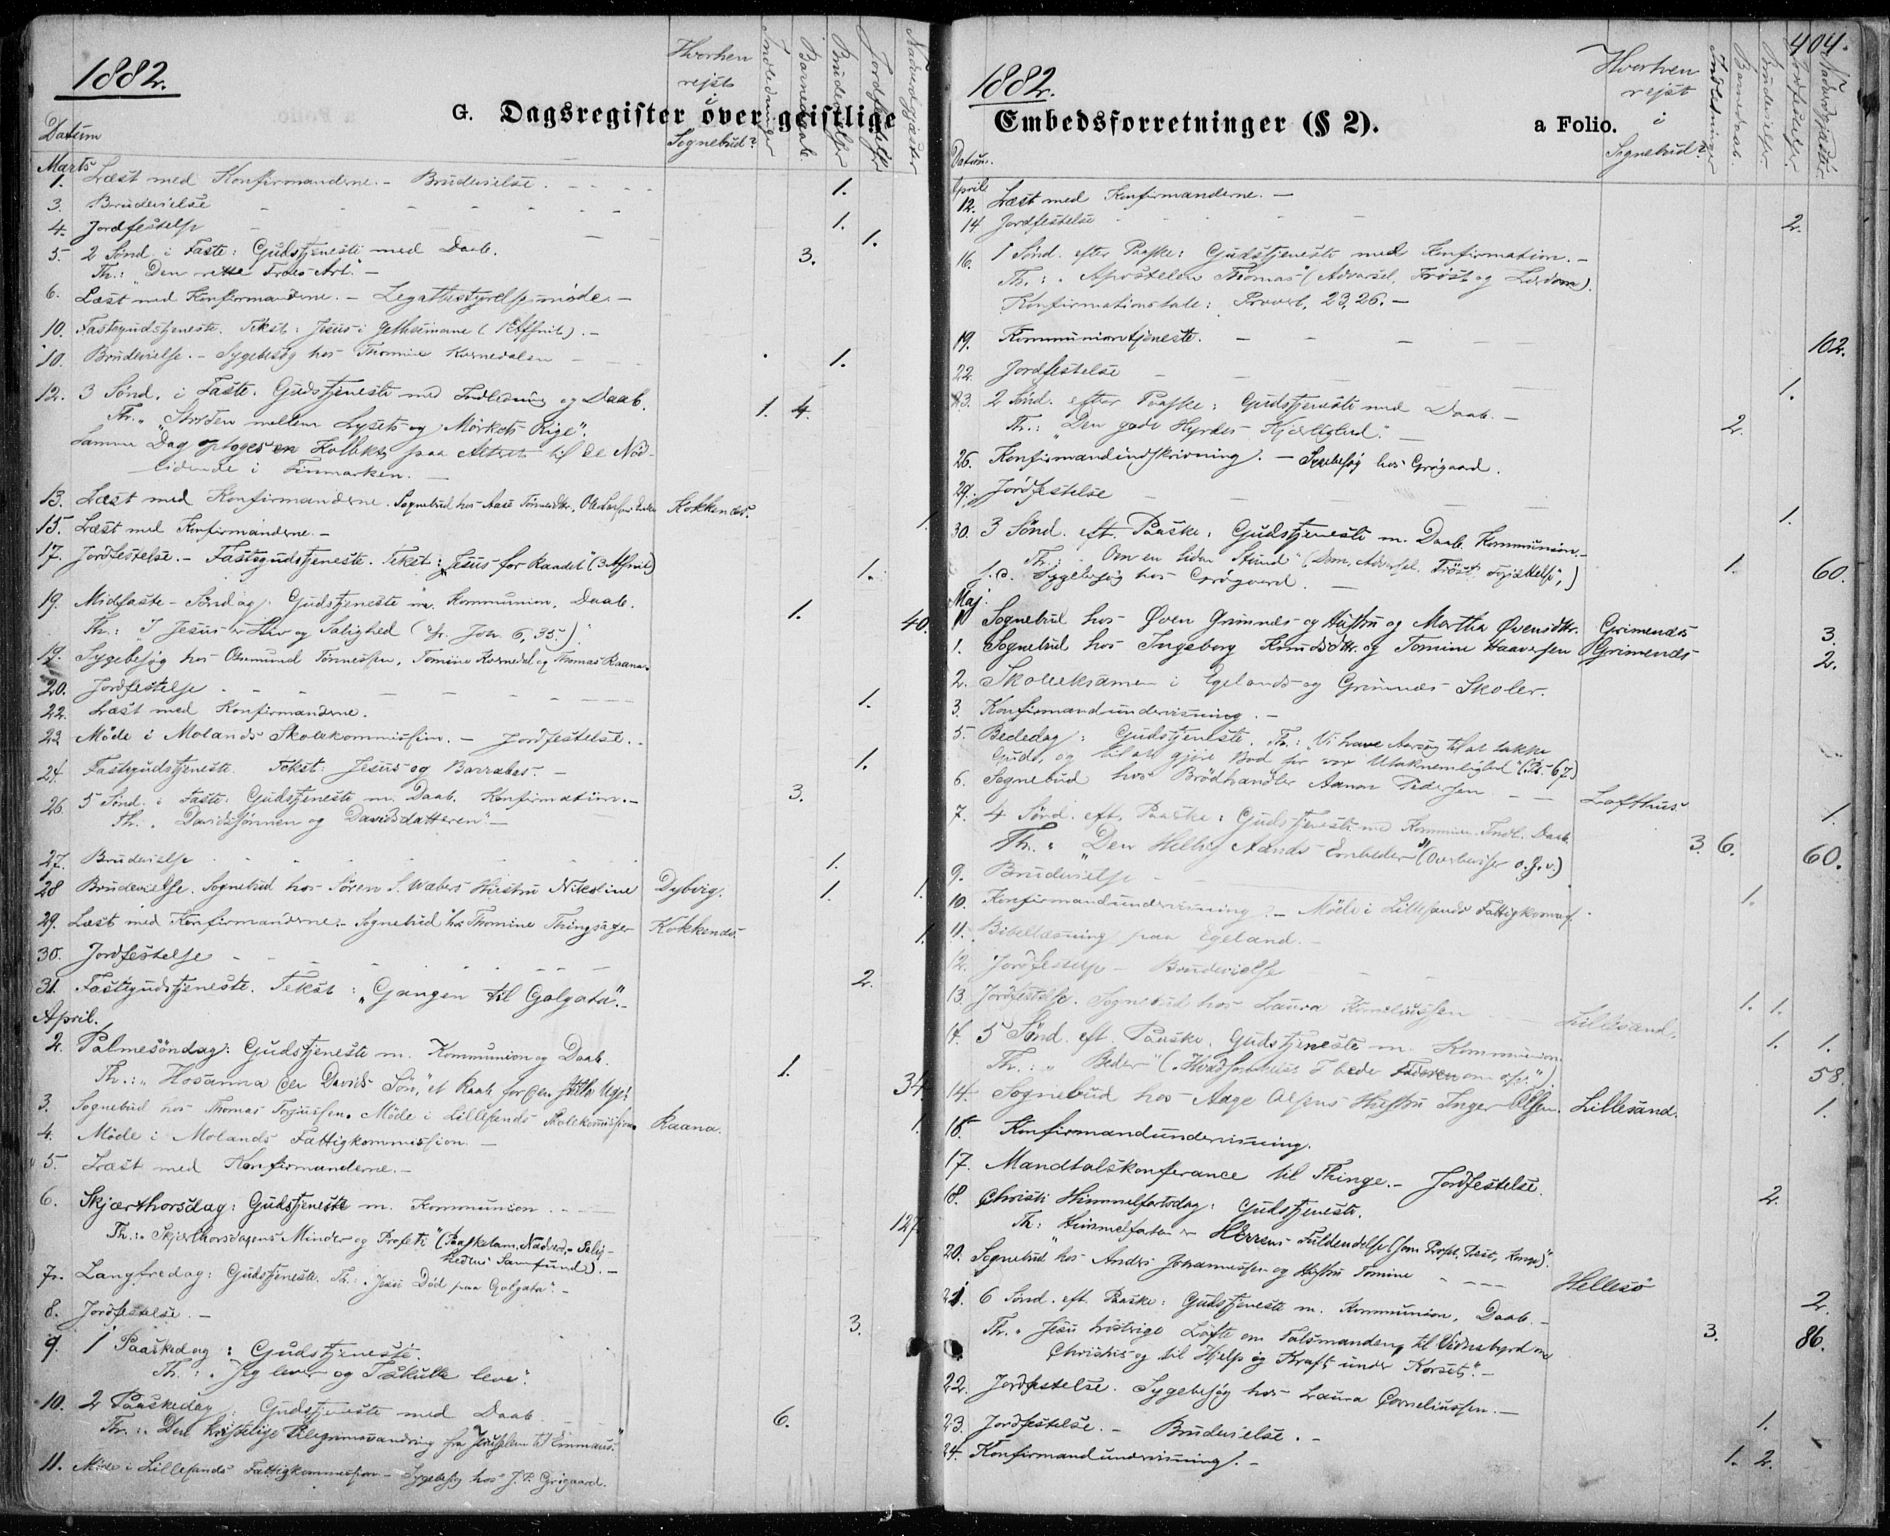 1882.
G. Dagsregister over geistlige
Datum
Hvorhen
rejst
i
Sognebud?
Indledninger
Barnedaab.
Brudevielser
Jordfæstelser
Nadvergjæster
Marts
1. Læst med Konfirmanderne. - Brudevielse. 1.
3. Brudevielse 1.
4. Jordfestelse 1.
5. 2 Sønd. i Faste: Gudstjeneste med Daab. 3.
Th.: "Den rette Troes Art." -
6. Læst med Konfirmanderne. - Legatbestyrelsesmøde. -
10. Fastegudstjeneste. Tekst: Jesus i Gethsemane (1 Afsnit). -
10. Brudevielse. - Sygebesøg hos Thomine Kornedalen 1.
12. 3 Sønd. i Faste. Gudstjeneste med Indledning og Daab. 1. 4.
Th. "Striden mellem Lysets og Mørkets Rige".
Samme Dag optoges en Kollekt paa Alteret til de Nød-
lidende i Finmarken. -
13. Læst med Konfirmanderne. Sognebud hos Aase Tønnesdtr. Kokkenes. 1.
15. Læst med Konfirmanderne. -
17. Jordfestelse. - Fastegudstjeneste. Tekst: "Jesus for Raadet" (3 Afsnit) 1.
19. Midfaste-Søndag. Gudstjeneste m. Kommunion, Daab. 1. 40.
Th.: I Jesus er Liv og Salighed (fr. Joh. 6, 35.)".
19. Sygebesøg hos Osmund Tønnessen, Tomine Kornedal og Thomas Raana.
20. Jordfestelse 1.
22. Læst med Konfirmanderne.
23 Møde i Molands Skolekommission. - Jordfestelse. 1.
24. Fastegudstjeneste. Tekst: Jesus og Barrabas. -
26. 5 Sønd. i Faste: Gudstjeneste m. Daab, Konfirmation. - 3.
Th. "Davidssønnen og Davidsdatteren" -
27. Brudevielse 1.
28 Brudevielse. Sognebud hos Søren S. Webers Hustru Nikoline Dybvig. 1. 1.
29. Læst med Konfirmanderne. - Sognebud hos Thomine Thingsager Kokkenes. 1.
30. Jordfestelse 2.
31. Fastegudstjeneste. Tekst: "Gangen til Golgata". -
April.
2. Palmesøndag: Gudstjeneste m. Kommunion og Daab. 1. 34
Th.: "Hosanna er Davids Søn," et Raab for den stille Uge!
3. Sognebud hos Thomas Terjussen. Møde i Lillesands Skolekommission Raana. 1.
4. Møde i Molands Fattigkommission. -
5. Læst med Konfirmanderne. -
6. Skjærthorsdag: Gudstjeneste m. Kommunion. 127
Th.: "Skjærthorsdagens Minder og Profeti" (Paaskelam, Nadver, Salig-
hedens Samfund). -
7. Langfredag: Gudstjeneste. Th.: "Jesu Død paa Golgata". -
8. Jordfestelse. - 3.
9. 1 Paaskedag: Gudstjeneste.
Th.: "Jeg lever og I skulle leve".
10. 2 Paaskedag: Gudstjeneste med Daab. 6.
Th.: "Den kristelige Pilegrimsvandring fra Jerusalem til Emmaus."
11. Møde i Lillesands Fattigkommission - Sygebesøg hos J. P. Grøgaard.
404.
1882.
Embedsforretninger (§ 2). a Folio.
Datum.
Hvorhen
rejst
i
Sognebud?
Indledninger
Barnedaab.
Brudevielser
Jordfæstelser
Nadvergjæster
April
12. Læst med Konfirmanderne. -
14 Jordfestelse 2.
16. 1 Sønd. efter Paaske: Gudstjeneste med Konfirmation. -
Th.: "Apostelen Thomas" (Advarsel, Trøst og Lærdom).
Konfirmationstale: Proverb. 23, 26. -
19. Kommuniontjeneste. 102.
22. Jordfestelse 1.
23. 2 Sønd. efter Paaske: Gudstjeneste med Daab. - 2.
Th.: "Den gode Hyrdes Kjærlighed." -
26. Konfirmandindskrivning. - Sygebesøg hos Grøgaard.
29. Jordfestelse 1.
30. 3 Sønd. eft. Paaske: Gudstjeneste m. Daab. Kommunion. - 1. 60.
Th.: "Om en liden Stund" (Dom, Advarsel, Trøst, )
s. d. Sygebesøg hos Grøgaard. -
Maj.
1 Sognebud hos Øven Grimnes og Hustru og Martha Øvensdtr. Grimenes 3.
1. Sognebud hos Ingeborg Knudsdtr. og Tomine Haaversen Grimenes 2.
2. Skoleeksamen i Egelands og Grimnes Skoler.
3. Konfirmandundervisning. -
5. Bededag: Gudstjeneste. Th.: "Vi have Aarsag til at takke
Gud, og til at gjøre Bod for vor Utaknemlighed" (Ps. 67)
6. Sognebud hos Brødhandler Aanon Pedersen Lofthus 1.
7. 4 Sønd. eft. Paaske: Gudstjeneste med Kommun. Indl. Daab. 3. 6. 60.
Th. "Den Hellig Aands Embeder" (Overbeviser o.s.v.)
9. Brudevielse 1.
10. Konfirmandundervisning. - Møde i Lillesands Fattigkommis.
11. Bibellæsning paa Egeland. -
12. Jordfestelse - Brudevielse 1. 1.
13. Jordfestelse. Sognebud hos Laura Korneliussen Lillesand. 1. 1.
14. 5 Sønd. eft. Paaske. Gudstjeneste m. Kommunion. 58.
Th.: "Beder" ("Hvadsomhelst I bede Faderen om osv.")
14. Sognebud hos Aage Olsens Hustru Inger Olsen. Lillesand. 1.
15. Konfirmandundervisning.
17. Mandtalskonferance til Thinge. - Jordfestelse. 2.
18. Christi Himmelfartsdag: Gudstjeneste.
Th: "Himmelfarten er Herrens Fuldendelse (som Profet, Præst, Konge)".
20. Sognebud hos Andrs Johannessen og Hustru Tomine Hellesø 2.
21. 6 Sønd. eft. Paaske: Gudstjeneste m. Kommunion, Daab. - 3. 86.
Th. "Jesu trøstrige Løfte om Talsmanden, til Vidnesbyrd om
Christus og til Hjelp og Kraft under Korset." -
22. Jordfestelse. Sygebesøg hos Laura Corneliussen. - 1.
23. Jordfestelse. - Brudevielse. - 1. 2.
24. Konfirmandundervisning. -